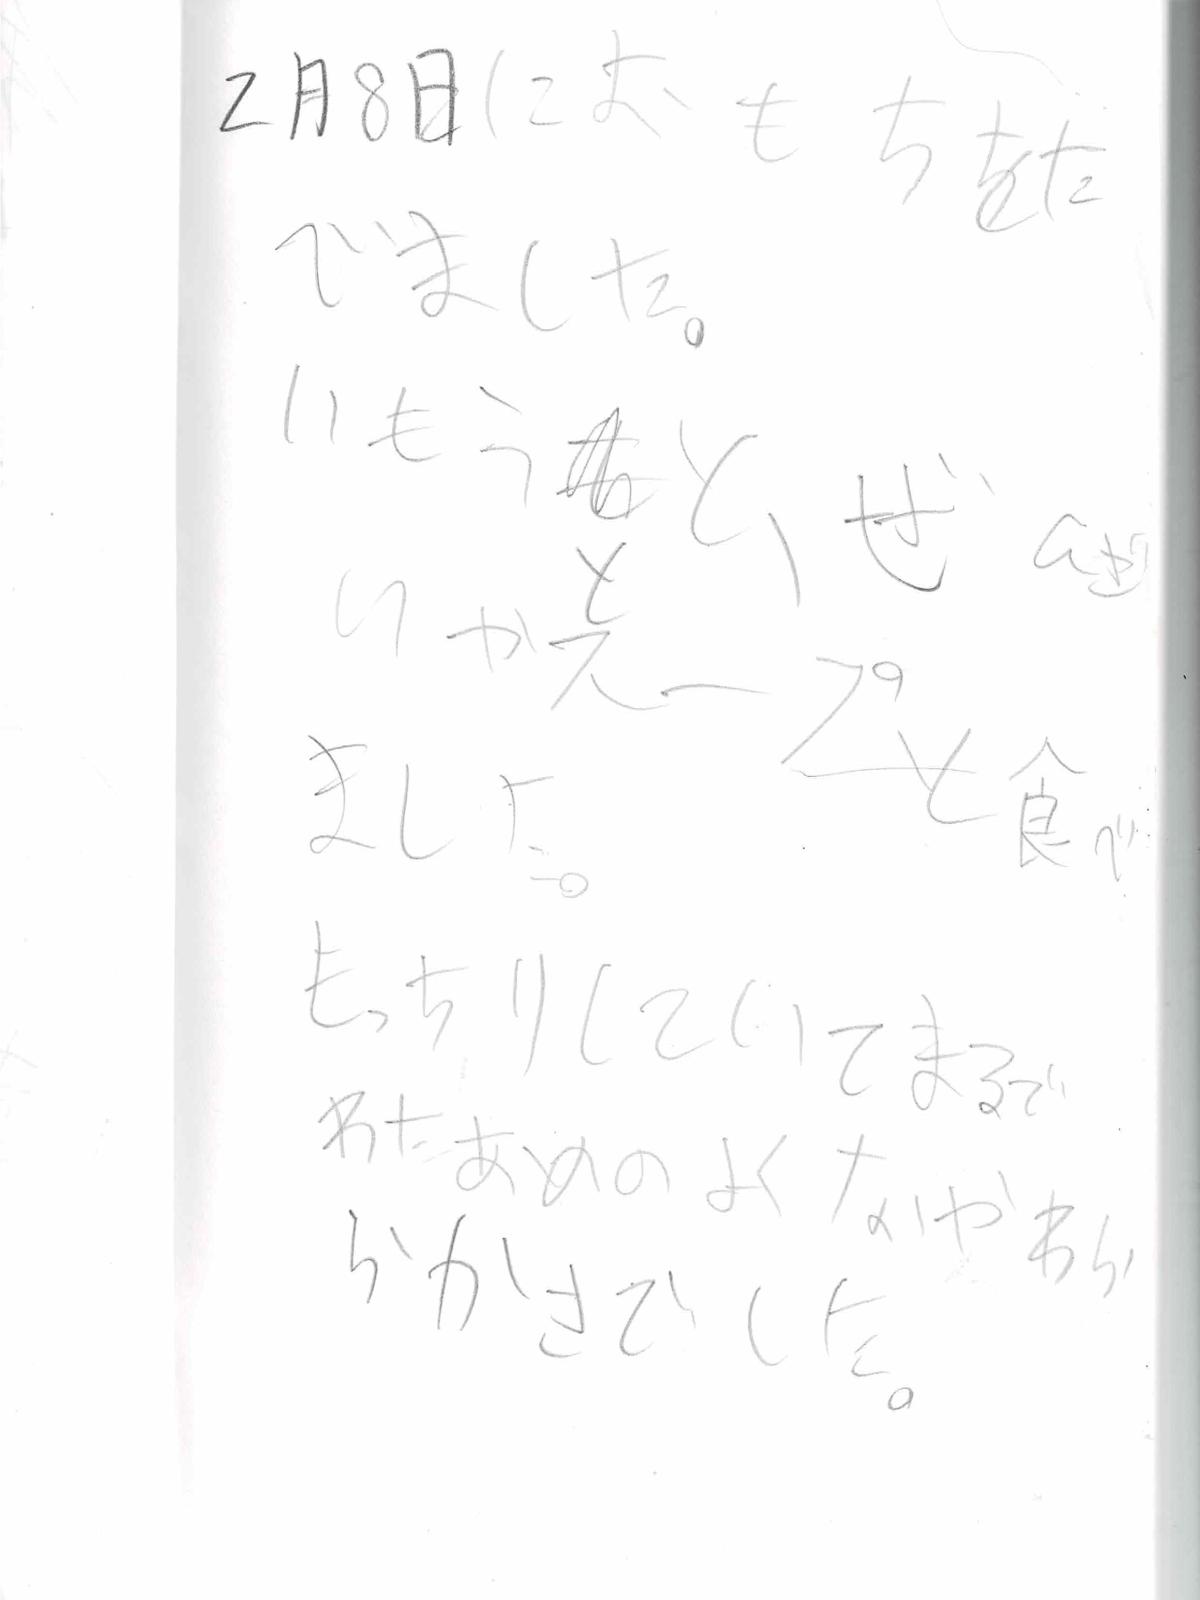 2月8日におもちをた
でました。
いもうとと、ぜ
いかスープと食べ
ました。
もっちりしていてまるで
わたあめのよくなやわら
らかさでした。